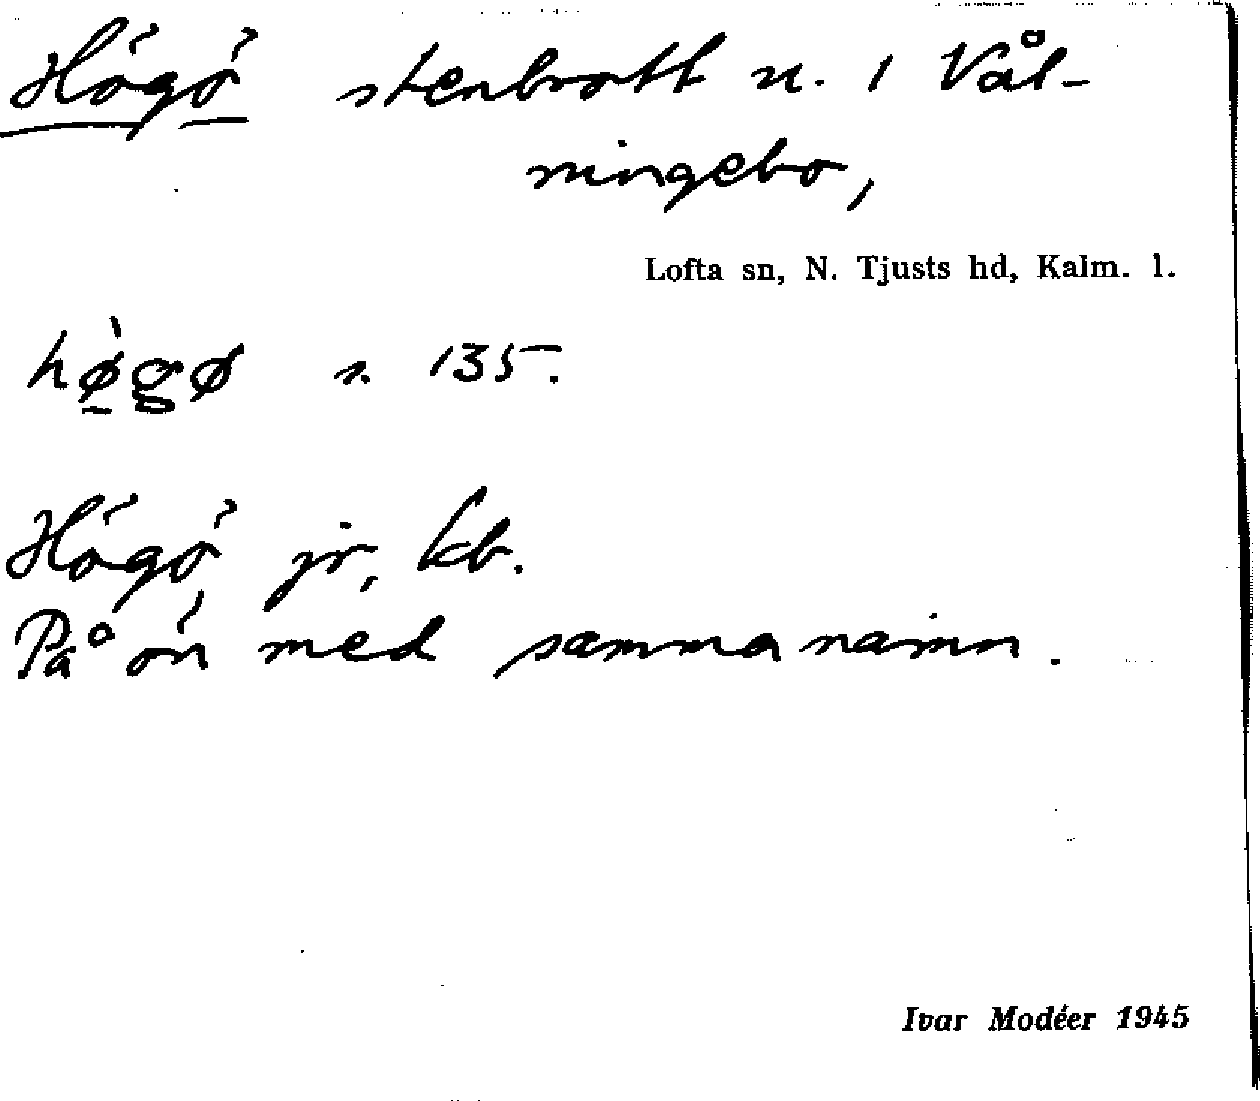 Högö stenbrott u. 1 Vål-
ningebo,
Lofta sn, N. Tjusts hd, Kalm. l.
hø̀gø s. 135.
Högö jr, kb.
På ön med samma namn.
Ivar Modéer 1945